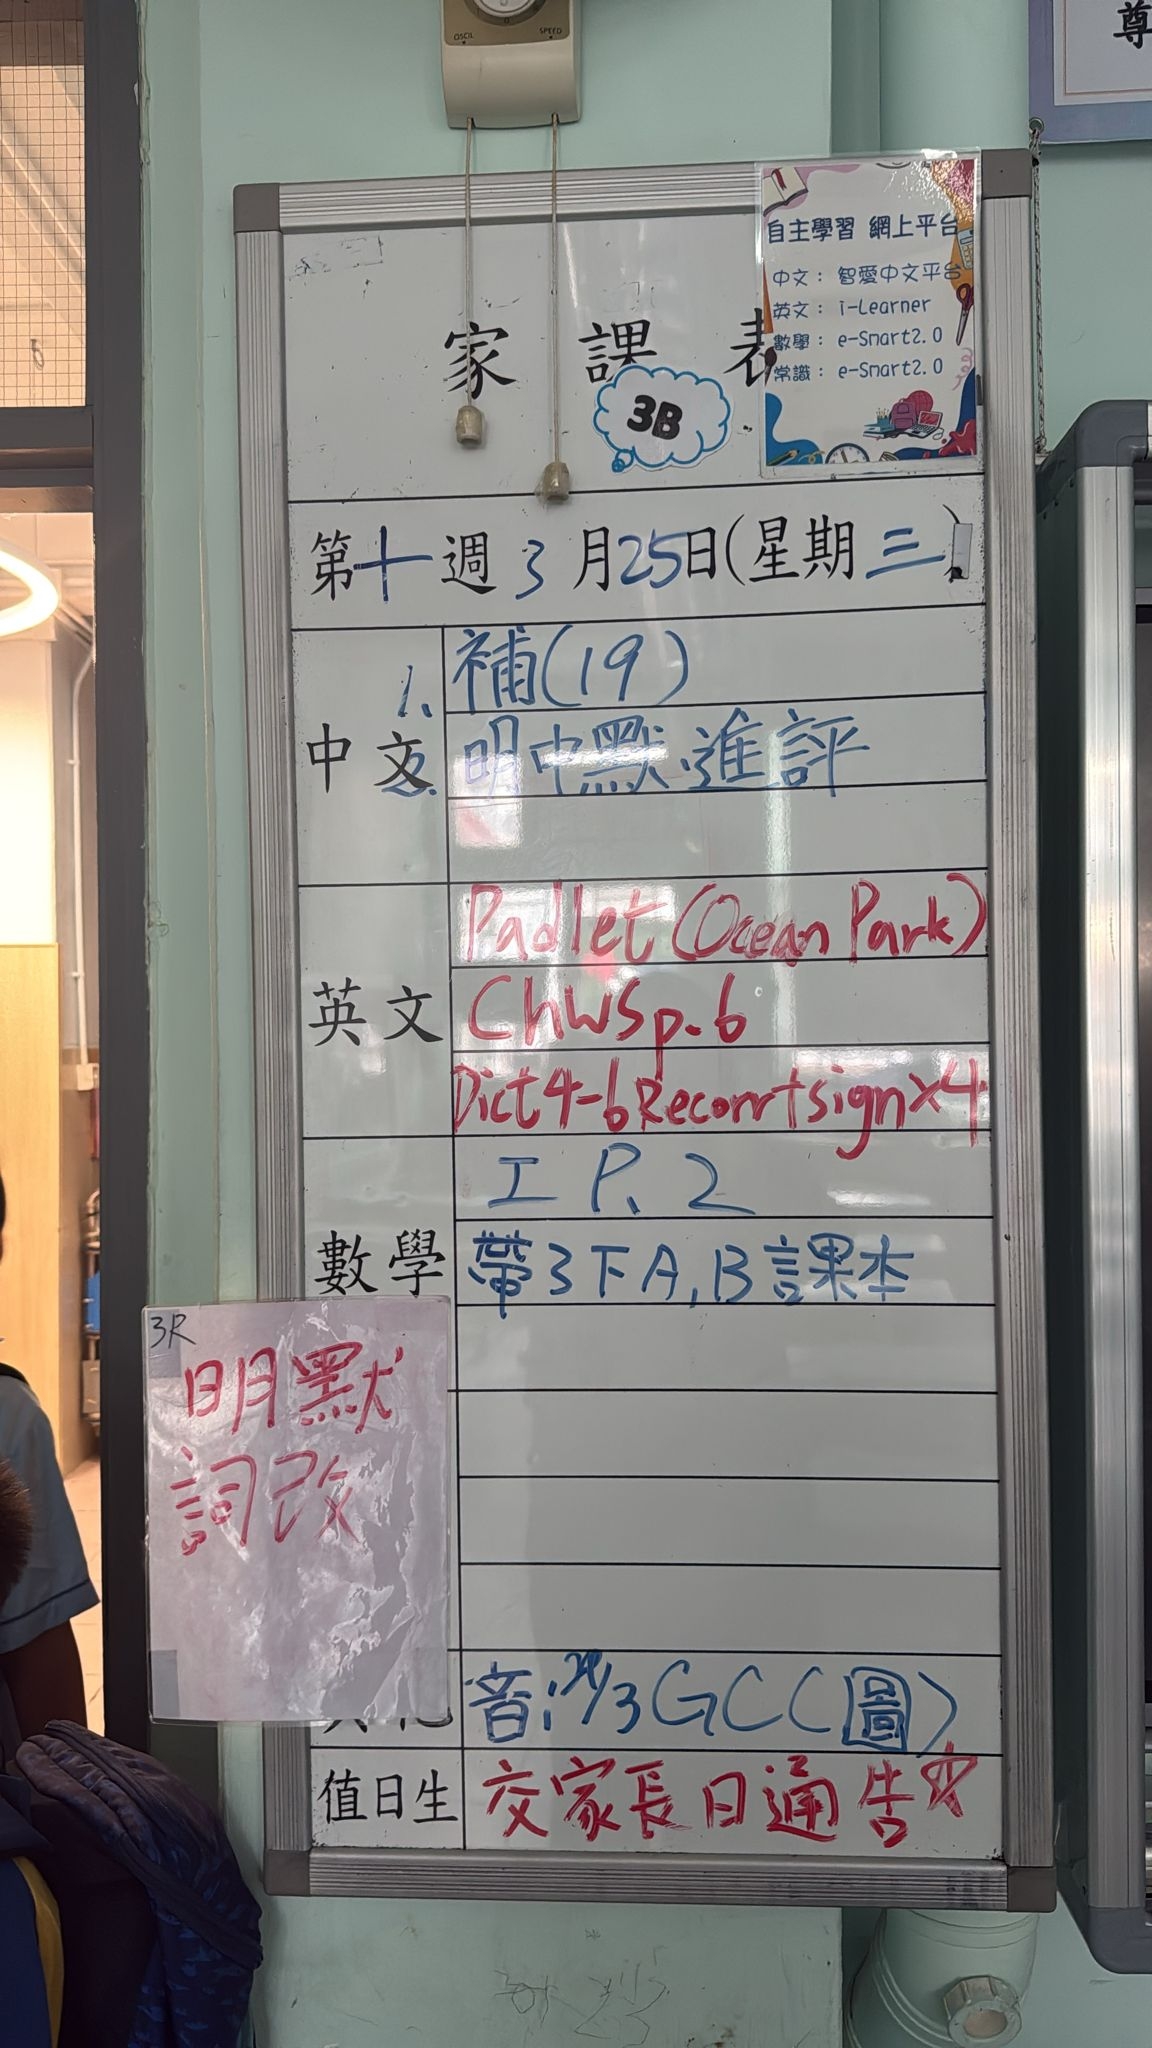 OSCIL SPEED
尊
自主學習 網上平台
中文： 智愛中文平台
英文： i-Learner
數學： e-Smart2.0
常識： e-Smart2.0
家 課 表
3B
第十週 3 月25日(星期 三)
中文
1. 補(19)
2. 明中默、進評
英文
Padlet (Ocean Park)
ChWS p.6
Dict 4-6 Recorrt sign x4
數學
工 P. 2
帶 3下A, B 課本
3R
明默
詞改
其他
音: /3 GCC (圖)
值日生
交家長日通告☆